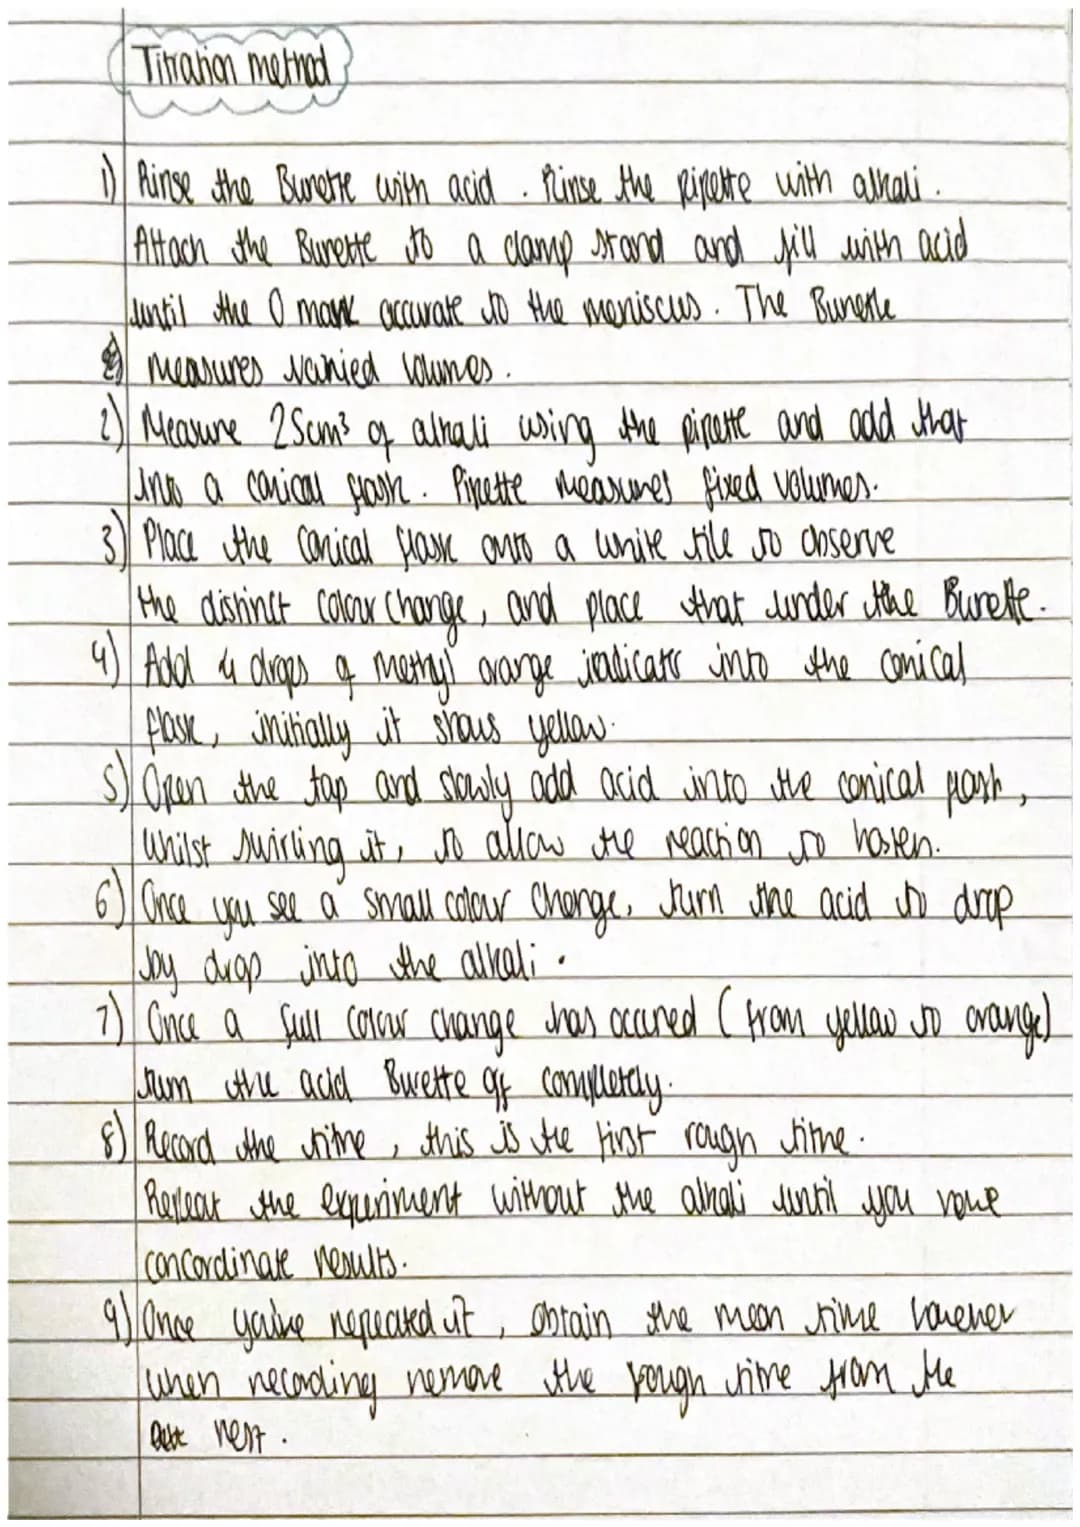 Titration method
1) Rinse the Burette with acid. Rinse the pipette with alkali.
Attach the Burette to a clamp stand and fill with acid
until the 0 mark accurate to the meniscus. The Burette
measures varied volumes.
2) Measure 25cm³ of alkali using the pipette and add that
into a conical flask. Pipette measures fixed volumes.
3) Place the conical flask onto a white tile to observe
the distinct colour change, and place that under the Burette.
4) Add 4 drops of methyl orange indicator into the conical
flask, initially it shows yellow.
5) Open the tap and slowly add acid into the conical flask,
Whilst swirling it, to allow the reaction to hasten.
6) Once you see a small colour change, turn the acid to drop
by drop into the alkali.
7) Once a full colour change has occured (from yellow to orange)
turn the acid Burette off completely.
8) Record the titre, this is the first rough titre.
Repeat the experiment without the alkali until you have
concordinate results.
9) Once you've repeated it, obtain the mean titre however
when recording remove the rough titre from the
rest.